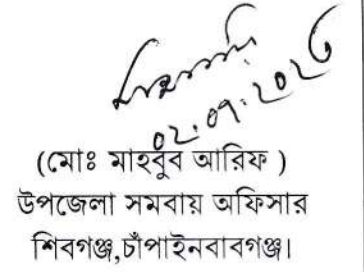 (মোঃ মাহবুব আরিফ )
উপজেলা সমবায় অফিসার
শিবগঞ্জ,চাঁপাইনবাবগঞ্জ।